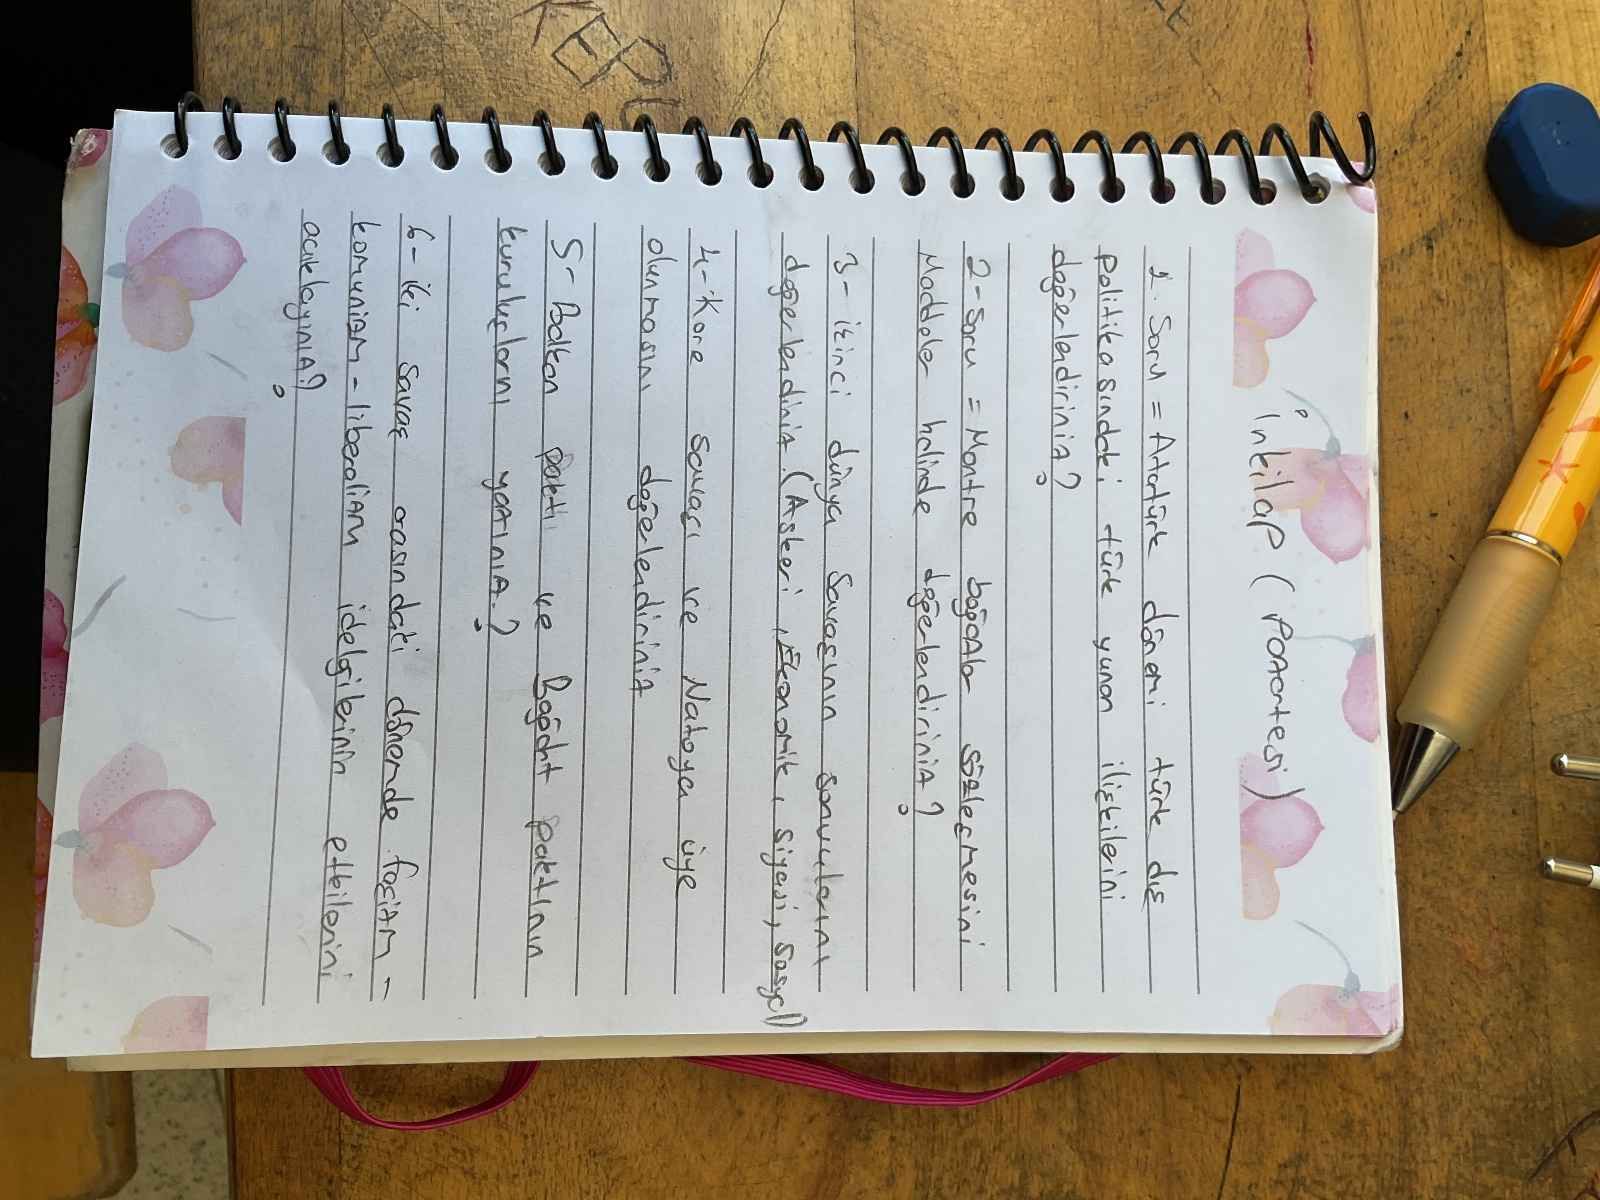 İnkilap (Pazartesi)
1. Soru = Atatürk dönemi türk dış
politikasındaki türk yunan ilişkilerini
değerlendiriniz?
2-Soru = Montre boğazlar sözleşmesini
Maddeler halinde değerlendiriniz?
3- ikinci dünya Savaşının sonuçlarını
değerlendiniz. (Askeri, Ekonomik, siyasi, sosyal)
4-Kore Savaşı ve Natoya üye
olunmasını değerlendiriniz
5- Balkan paktı ve Bağdat paktının
kuruluşlarnı yazınız.?
6- iki savaş arasındaki dönemde faşizm-
komunizm-liberalizm idelojilerinin etkilerini
acıklayınız?
KEP